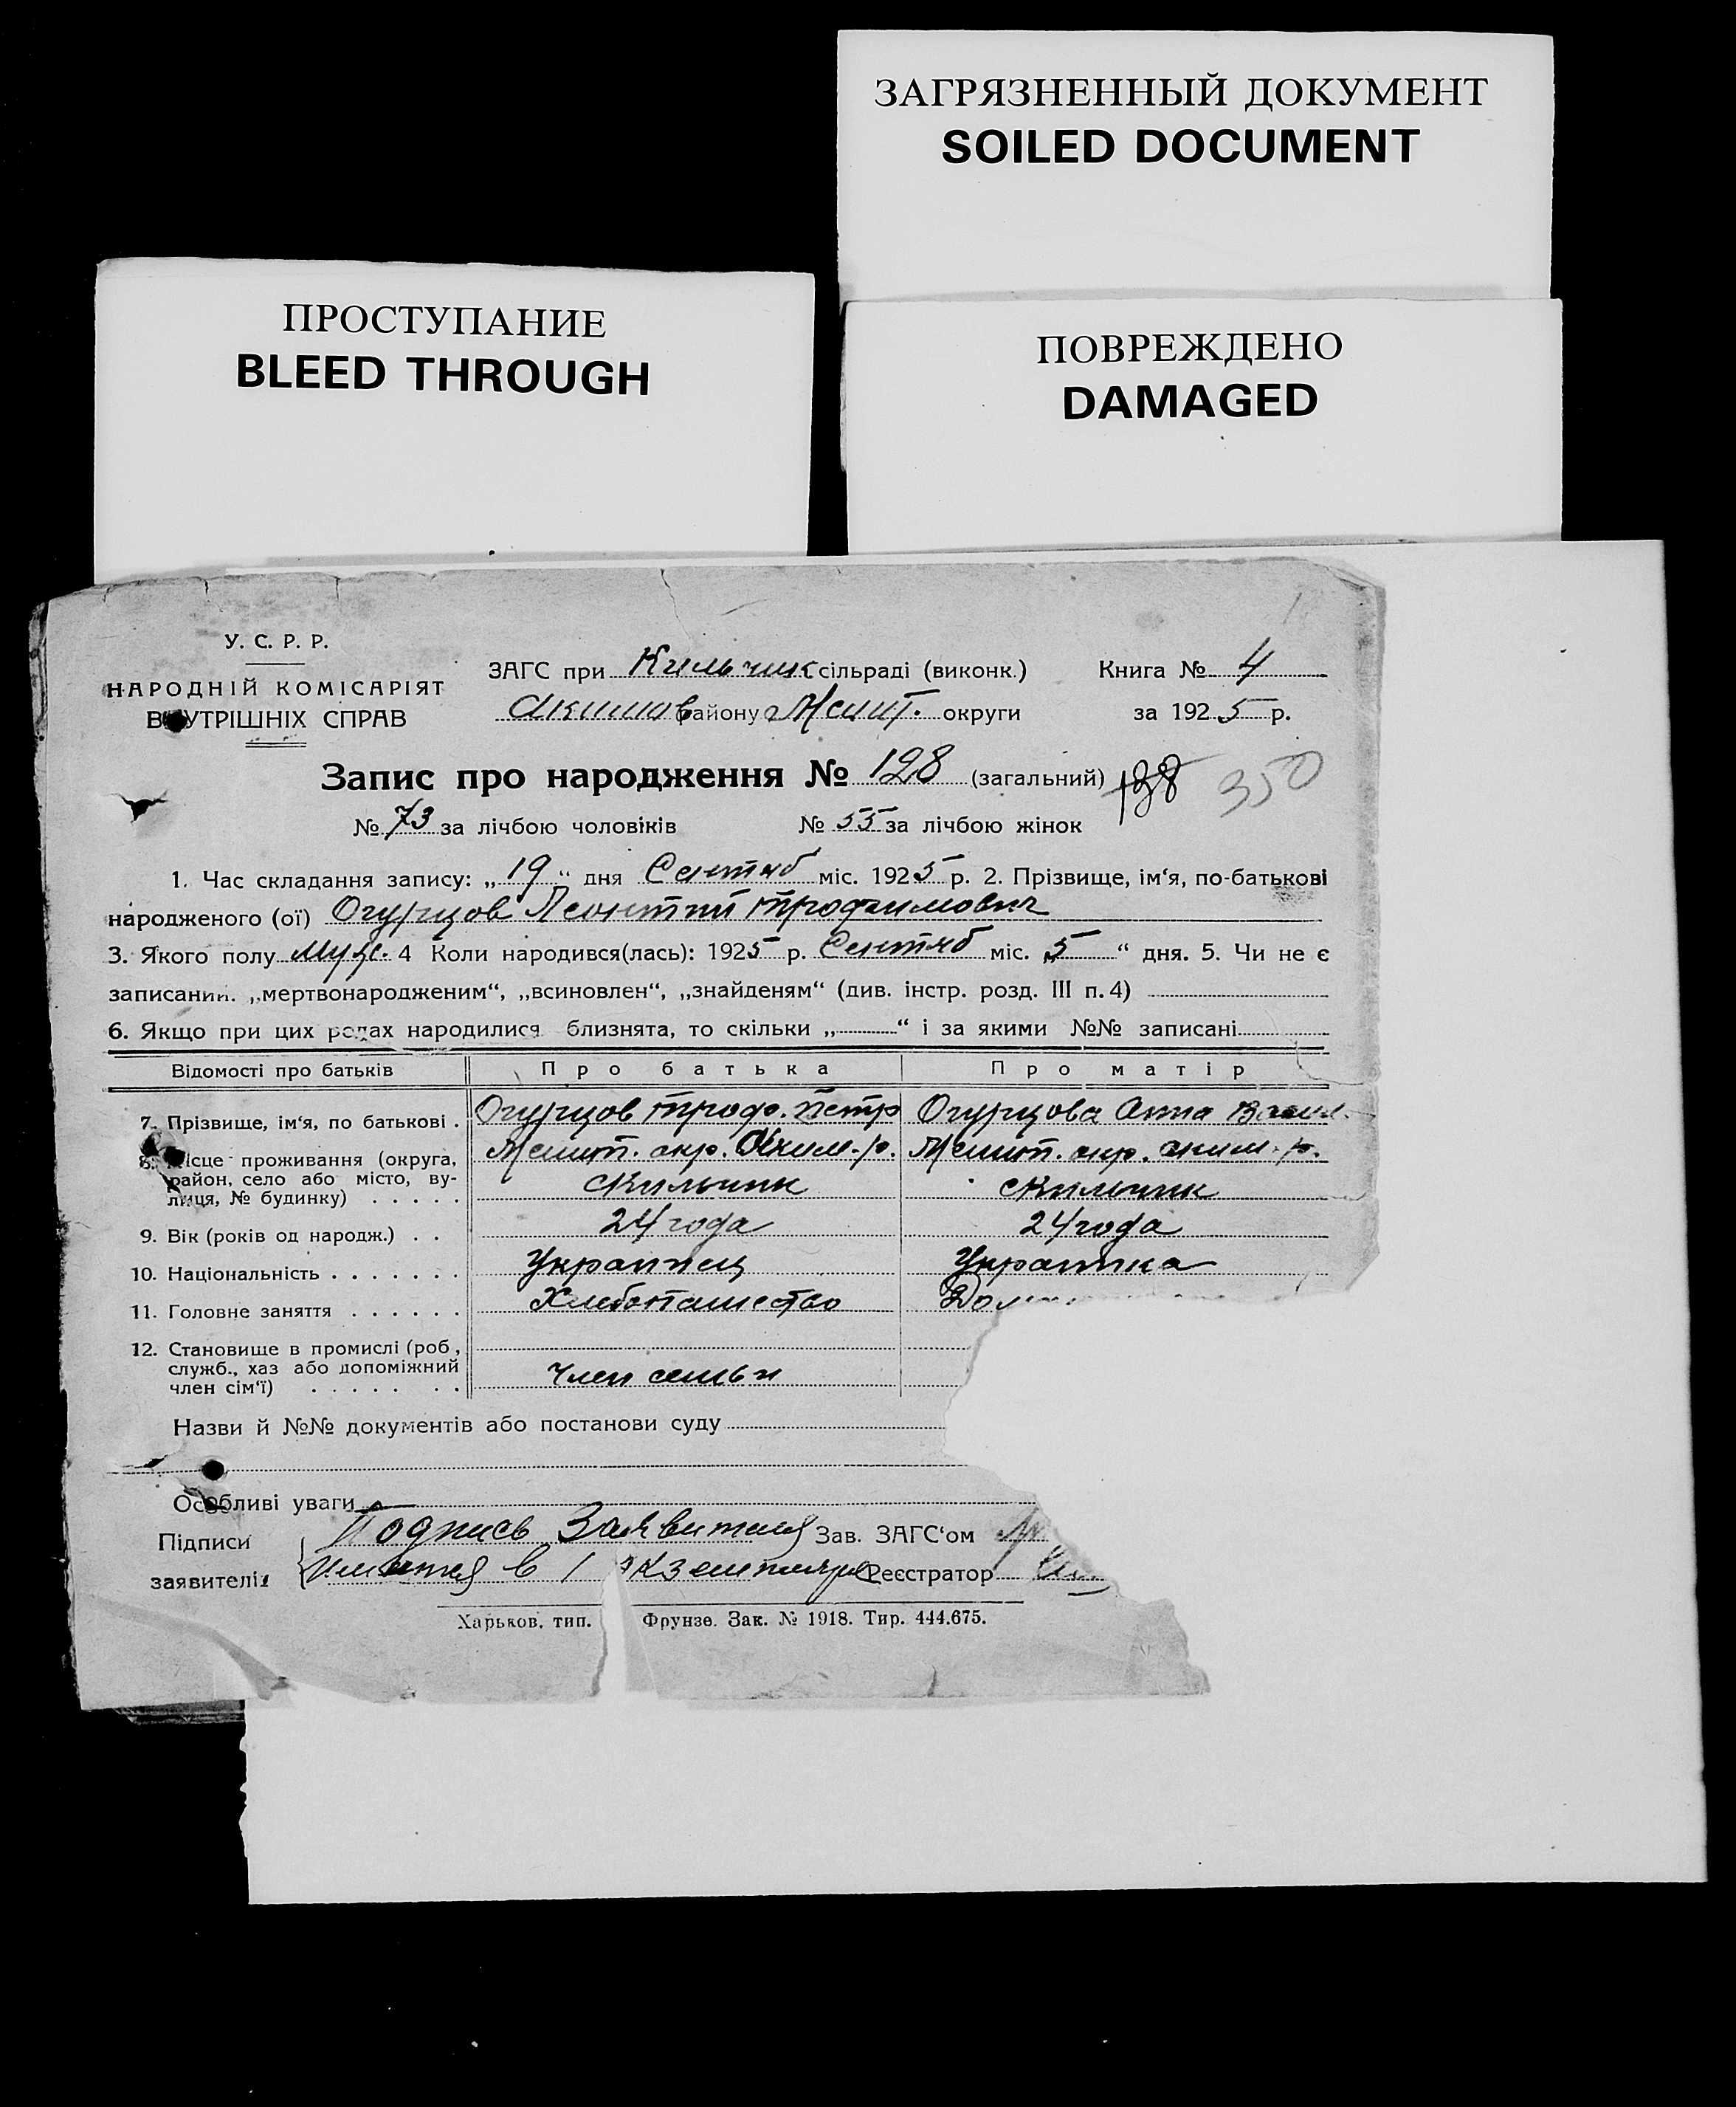 ЗАГРЯЗНЕННЫЙ ДОКУМЕНТ
SOILED DOCUMENT
ПРОСТУПАНИЕ
BLEED THROUGH
ПОВРЕЖДЕНО
DAMAGED
У. С. Р. Р.
НАРОДНІЙ КОМІСАРІЯТ
В УТРІШНІХ СПРАВ
ЗАГС при Кильчик сільраді (виконк.) Книга № 4
Акимов району Мелит. округи за 1925 р.
Запис про народження № 128 (загальний) 138 350
№ 73 за лічбою чоловіків № 55 за лічбою жінок
1. Час складання запису: „19“ дня Сентяб міс. 1925 р. 2. Прізвище, ім‘я, по-батькові
народженого (ої) Огурцов Леонтий Трофимович
3. Якого полу муж. 4 Коли народився(лась): 1925 р. Сентяб міс. „5“ дня. 5. Чи не є
записаний. „мертвонародженим“, „всиновлен“, „знайденям“ (див. інстр. розд. III п. 4)
6. Якщо при цих родах народилися близнята, то скільки „ “ і за якими №№ записані
Відомості про батьків Про батька Про матір
7. Прізвище, ім‘я, по батькові . Огурцов Троф. Петр Огурцова Анна Васил.
8. Місце проживання (округа, район, село або місто, вулиця, № будинку) Мелит. окр. Аким. р. Мелит. окр. аким. р.
с Кильчик с Кильчик
9. Вік (років од народж.) . . 24 года 24 года
10. Національність . . . . . . . Украинец Украинка
11. Головне заняття . . . . . . Хлебопашество
12. Становище в промислі (роб, служб., хаз або допоміжний член сім‘ї) Член семьи
Назви й №№ документів або постанови суду
Особливі уваги
Підписи заявителів { Подпись Заявителя Зав. ЗАГС‘ом
имеется в 1 экземпляре Реєстратор
Харьков. тип. Фрунзе. Зак. № 1918. Тир. 444.675.